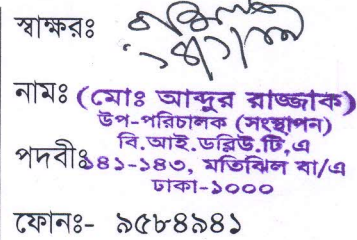 স্বাক্ষরঃ
নামঃ (মোঃ আব্দুর রাজ্জাক)
উপ-পরিচালক (সংস্থাপন)
পদবীঃ বি.আই.ডব্লিউ.টি,এ
১৪১-১৪৩, মতিঝিল বা/এ
ঢাকা-১০০০
ফোনঃ- ৯৫৮৪৯৪১